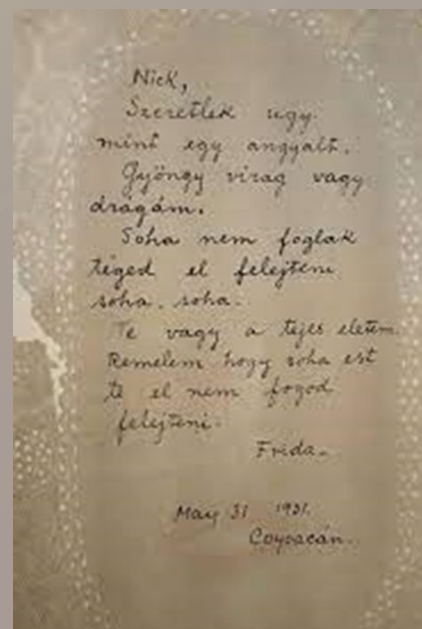 Nick,
Szeretlek ugy
mint egy angyalt.
Gyöngy virag vagy
drágám.
Soha nem foglak
téged el felejteni
soha. soha.
Te vagy a tejes eletem.
Remelem hogy soha est
te el nem fogod
felejteni.
Frida.
May 31 1931.
Coyoacán.